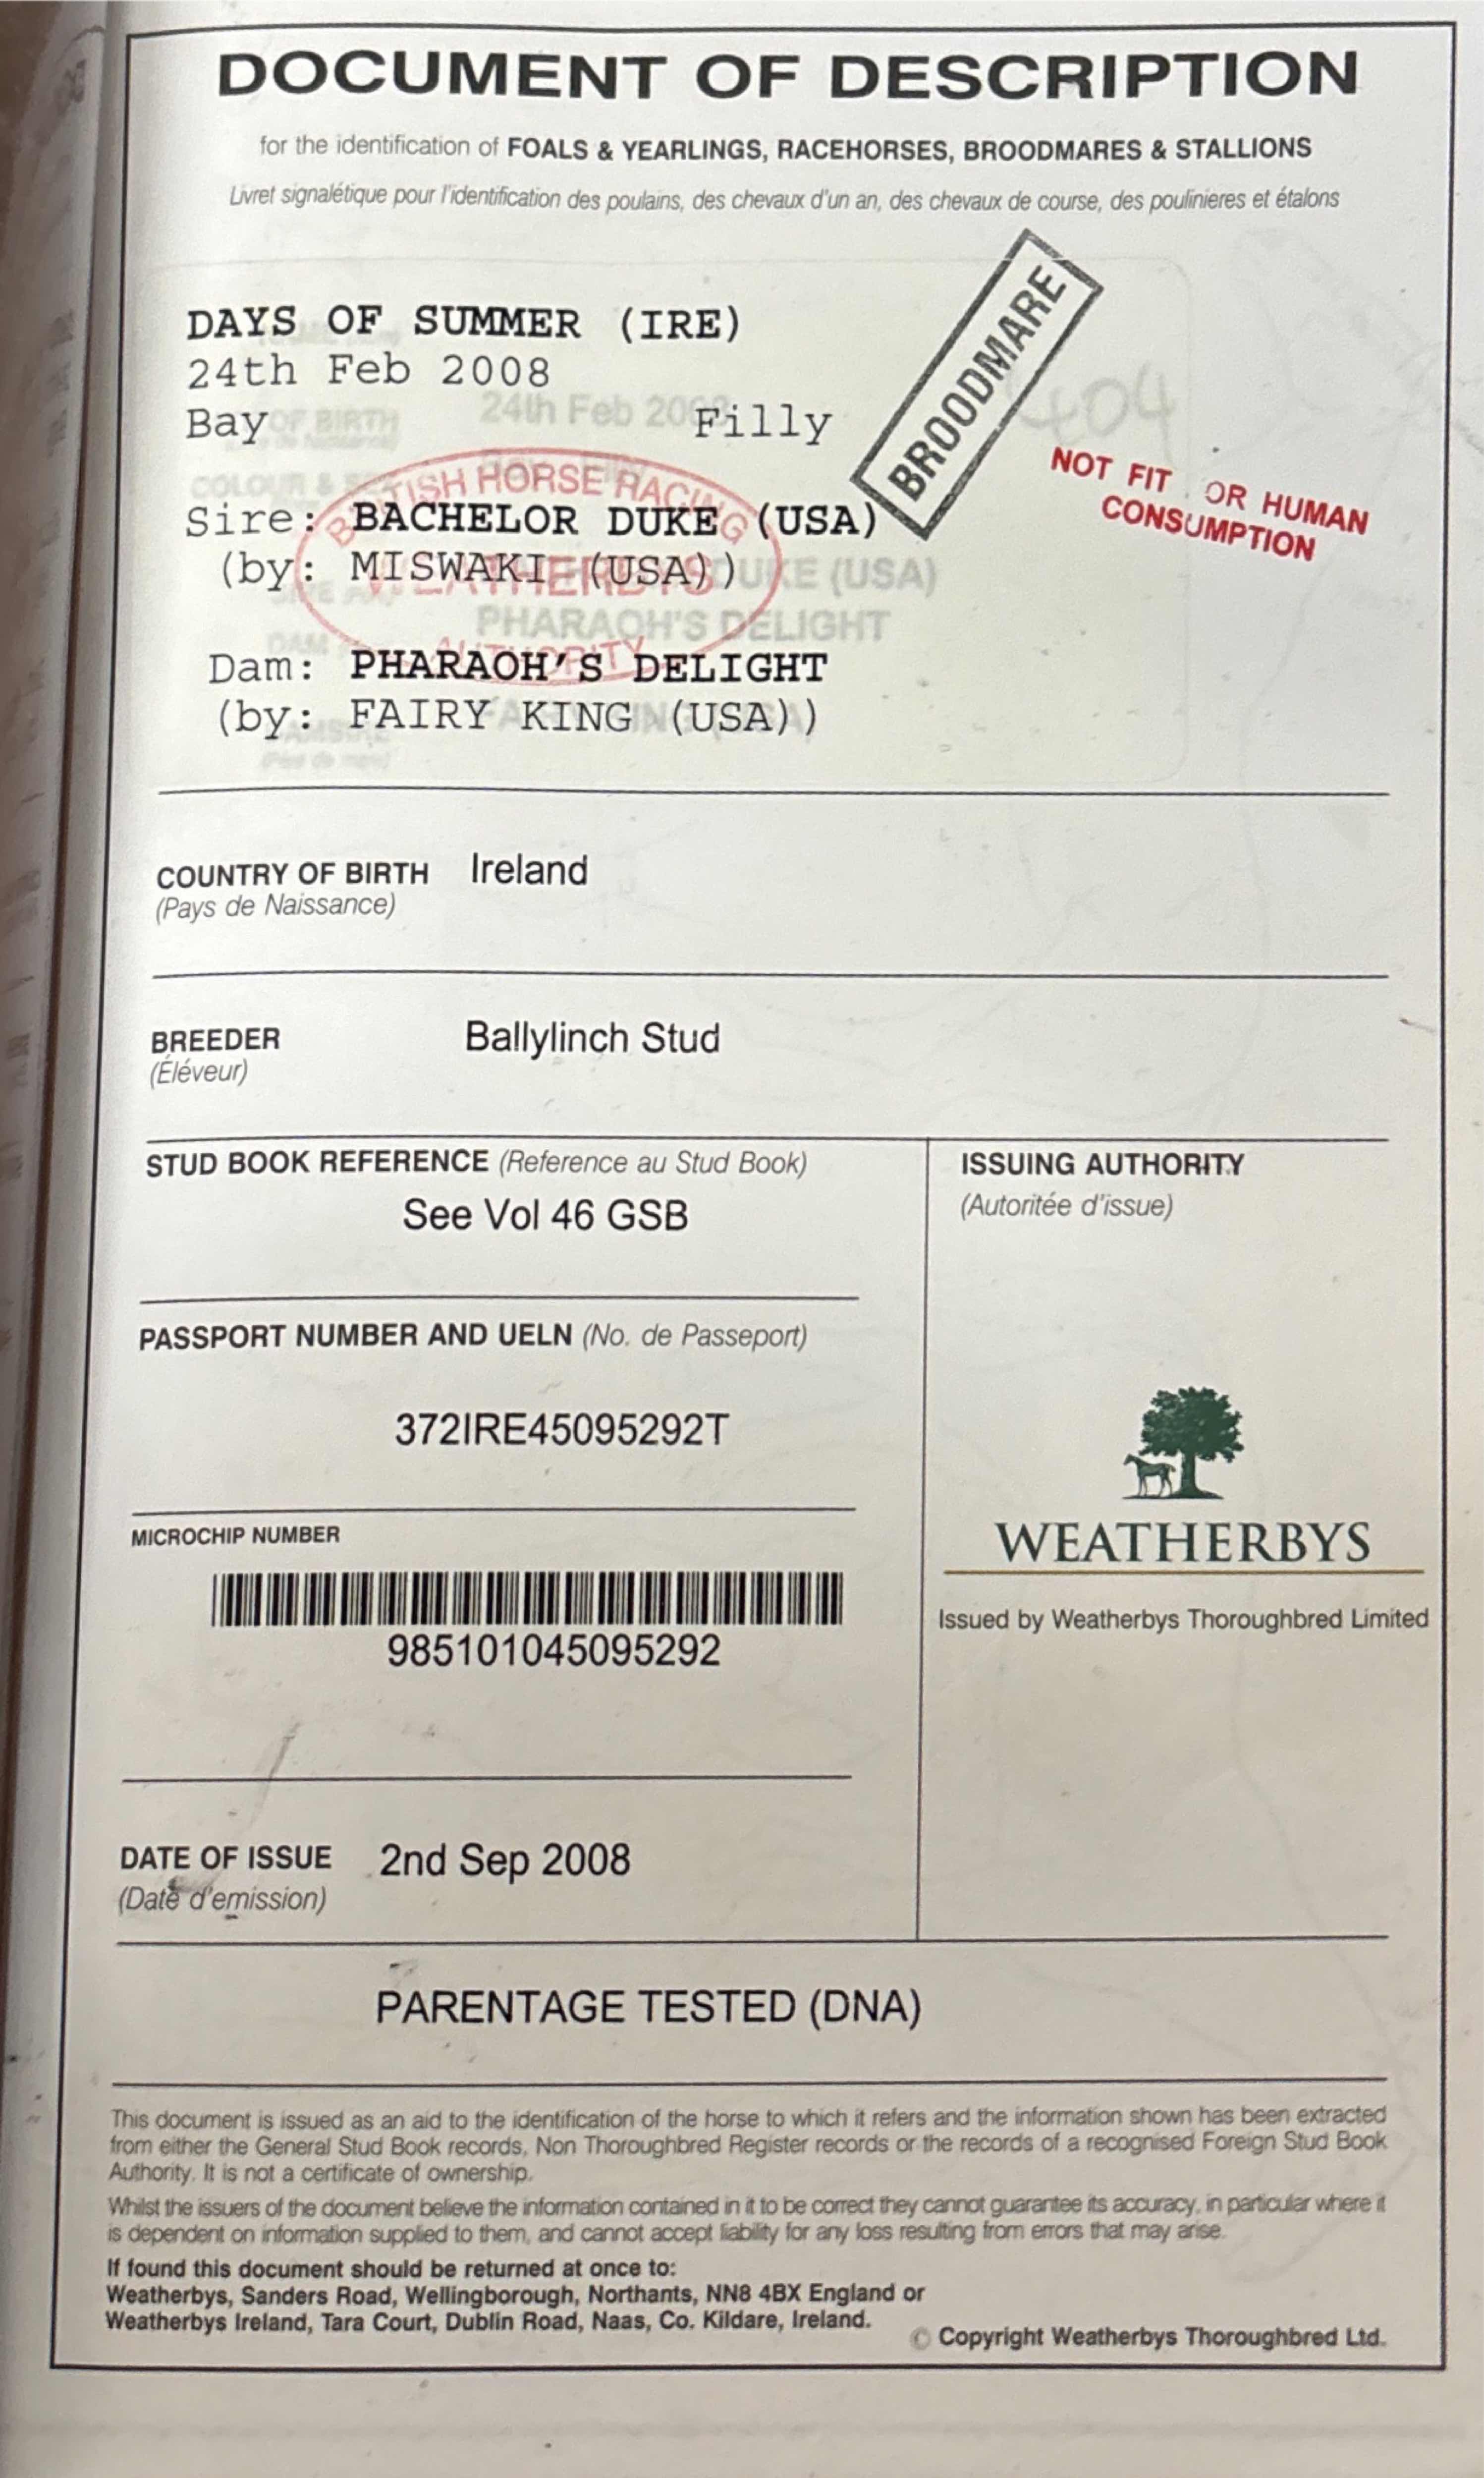 DOCUMENT OF DESCRIPTION
for the identification of FOALS & YEARLINGS, RACEHORSES, BROODMARES & STALLIONS
Livret signalétique pour l'identification des poulains, des chevaux d'un an, des chevaux de course, des poulinieres et étalons
BROODMARE
404
NOT FIT OR HUMAN
CONSUMPTION
DAYS OF SUMMER (IRE)
24th Feb 2008
24th Feb 2008
OF BIRTH
Bay Filly
COLOUR &
BRITISH HORSE RACING
Sire: BACHELOR DUKE (USA)
(by: MISWAKI (USA))
WEATHERBYS
DUKE (USA)
PHARAOH'S DELIGHT
AUTHORITY
DAM
Dam: PHARAOH'S DELIGHT
(by: FAIRY KING (USA))
COUNTRY OF BIRTH Ireland
(Pays de Naissance)
BREEDER Ballylinch Stud
(Éléveur)
STUD BOOK REFERENCE (Reference au Stud Book)
See Vol 46 GSB
PASSPORT NUMBER AND UELN (No. de Passeport)
372IRE45095292T
MICROCHIP NUMBER
985101045095292
DATE OF ISSUE 2nd Sep 2008
(Date d'emission)
ISSUING AUTHORITY
(Autoritée d'issue)
WEATHERBYS
Issued by Weatherbys Thoroughbred Limited
PARENTAGE TESTED (DNA)
This document is issued as an aid to the identification of the horse to which it refers and the information shown has been extracted
from either the General Stud Book records, Non Thoroughbred Register records or the records of a recognised Foreign Stud Book
Authority. It is not a certificate of ownership.
Whilst the issuers of the document believe the information contained in it to be correct they cannot guarantee its accuracy, in particular where it
is dependent on information supplied to them, and cannot accept liability for any loss resulting from errors that may arise.
If found this document should be returned at once to:
Weatherbys, Sanders Road, Wellingborough, Northants, NN8 4BX England or
Weatherbys Ireland, Tara Court, Dublin Road, Naas, Co. Kildare, Ireland.
© Copyright Weatherbys Thoroughbred Ltd.